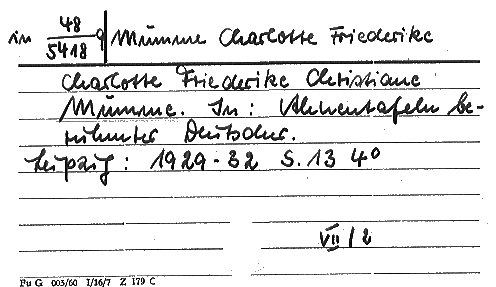 in 48/5418 q Mumme Charlotte Friederike
Charlotte Friederike Christiane
Mumme. In: Ahnentafeln be-
rühmter Deutscher.
Leipzig: 1929-32 S. 13 4°
VII/2
Fu G 003/60 I/16/7 Z 179 C